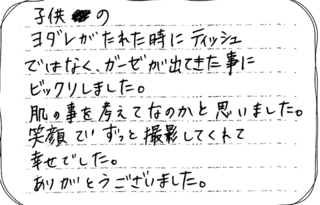 子供の
ヨダレがたれた時にティッシュ
ではなく、ガーゼが出てきた事に
ビックリしました。
肌の事を考えてなのかと思いました。
笑顔でいずっと撮影してくれて
幸せでした。
ありがとうございました。